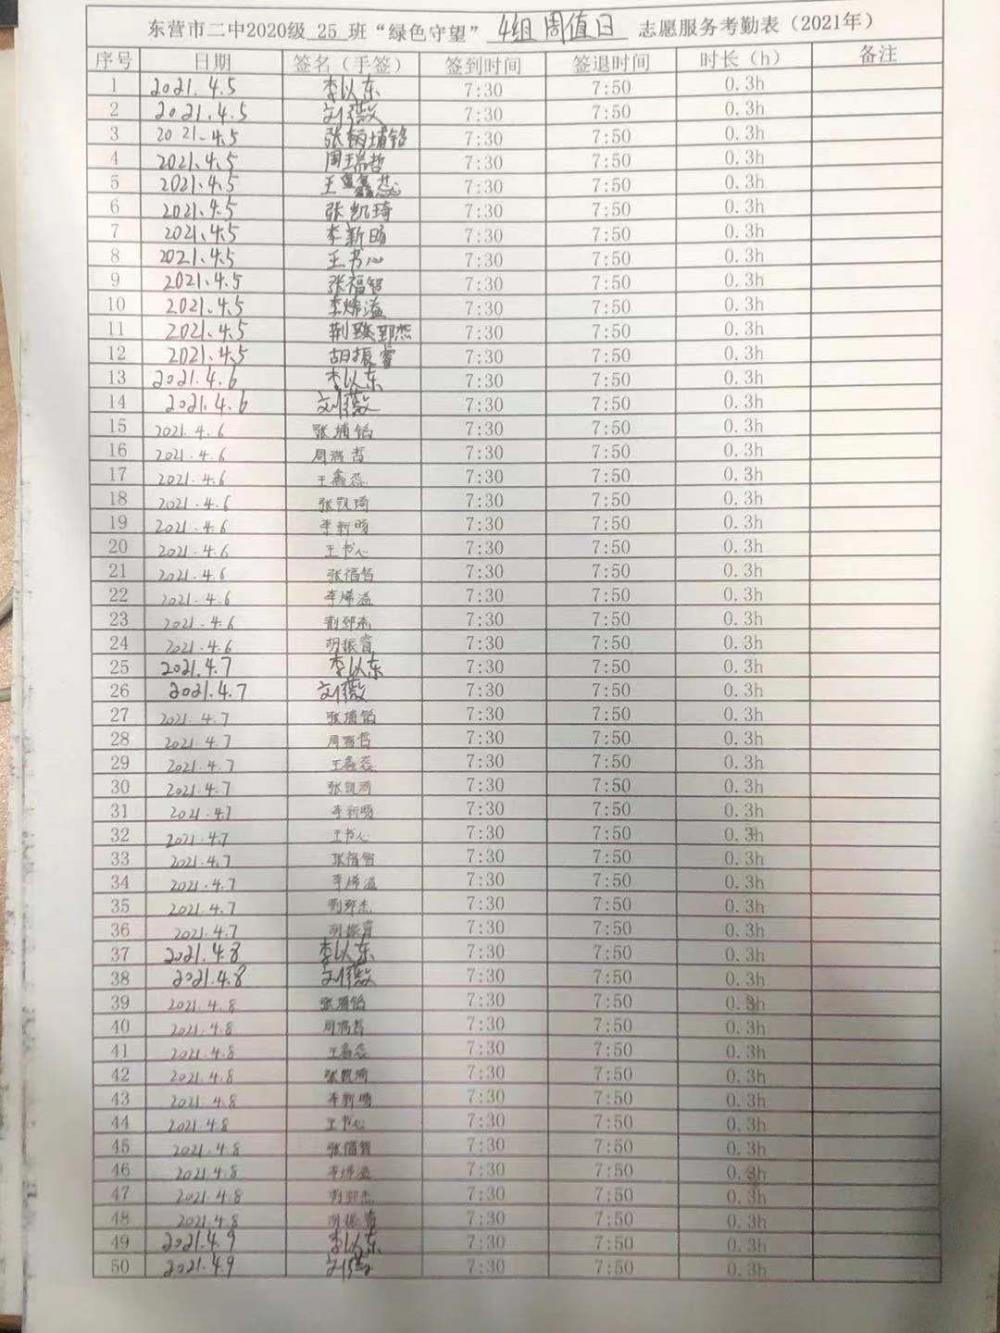 东营市二中2020级 25 班“绿色守望” 4组 周值日 志愿服务考勤表（2021年）
序号 日期 签名（手签） 签到时间 签退时间 时长（h） 备注
1 2021.4.5 李以东 7:30 7:50 0.3h
2 2021.4.5 刘薇 7:30 7:50 0.3h
3 2021.4.5 张 7:30 7:50 0.3h
4 2021.4.5 周瑞哲 7:30 7:50 0.3h
5 2021.4.5 王鑫蕊 7:30 7:50 0.3h
6 2021.4.5 张凯琦 7:30 7:50 0.3h
7 2021.4.5 李新 7:30 7:50 0.3h
8 2021.4.5 王书心 7:30 7:50 0.3h
9 2021.4.5 张福 7:30 7:50 0.3h
10 2021.4.5 李烯溢 7:30 7:50 0.3h
11 2021.4.5 荆 郅杰 7:30 7:50 0.3h
12 2021.4.5 胡振睿 7:30 7:50 0.3h
13 2021.4.6 李以东 7:30 7:50 0.3h
14 2021.4.6 刘薇 7:30 7:50 0.3h
15 2021.4.6 张 7:30 7:50 0.3h
16 2021.4.6 周瑞哲 7:30 7:50 0.3h
17 2021.4.6 王鑫蕊 7:30 7:50 0.3h
18 2021.4.6 张凯琦 7:30 7:50 0.3h
19 2021.4.6 李新 7:30 7:50 0.3h
20 2021.4.6 王书心 7:30 7:50 0.3h
21 2021.4.6 张福 7:30 7:50 0.3h
22 2021.4.6 李烯溢 7:30 7:50 0.3h
23 2021.4.6 荆郅杰 7:30 7:50 0.3h
24 2021.4.6 胡振睿 7:30 7:50 0.3h
25 2021.4.7 李以东 7:30 7:50 0.3h
26 2021.4.7 刘薇 7:30 7:50 0.3h
27 2021.4.7 张 7:30 7:50 0.3h
28 2021.4.7 周瑞哲 7:30 7:50 0.3h
29 2021.4.7 王鑫蕊 7:30 7:50 0.3h
30 2021.4.7 张凯琦 7:30 7:50 0.3h
31 2021.4.7 李新 7:30 7:50 0.3h
32 2021.4.7 王书心 7:30 7:50 0.3h
33 2021.4.7 张福 7:30 7:50 0.3h
34 2021.4.7 李烯溢 7:30 7:50 0.3h
35 2021.4.7 荆郅杰 7:30 7:50 0.3h
36 2021.4.7 胡振睿 7:30 7:50 0.3h
37 2021.4.8 李以东 7:30 7:50 0.3h
38 2021.4.8 刘薇 7:30 7:50 0.3h
39 2021.4.8 张 7:30 7:50 0.3h
40 2021.4.8 周瑞哲 7:30 7:50 0.3h
41 2021.4.8 王鑫蕊 7:30 7:50 0.3h
42 2021.4.8 张凯琦 7:30 7:50 0.3h
43 2021.4.8 李新 7:30 7:50 0.3h
44 2021.4.8 王书心 7:30 7:50 0.3h
45 2021.4.8 张福 7:30 7:50 0.3h
46 2021.4.8 李烯溢 7:30 7:50 0.3h
47 2021.4.8 荆郅杰 7:30 7:50 0.3h
48 2021.4.8 胡振睿 7:30 7:50 0.3h
49 2021.4.9 李以东 7:30 7:50 0.3h
50 2021.4.9 刘薇 7:30 7:50 0.3h